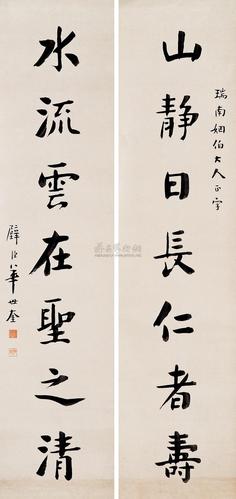 瑞南姻伯大人正字
山静日長仁者壽
水流雲在聖之清
華世奎